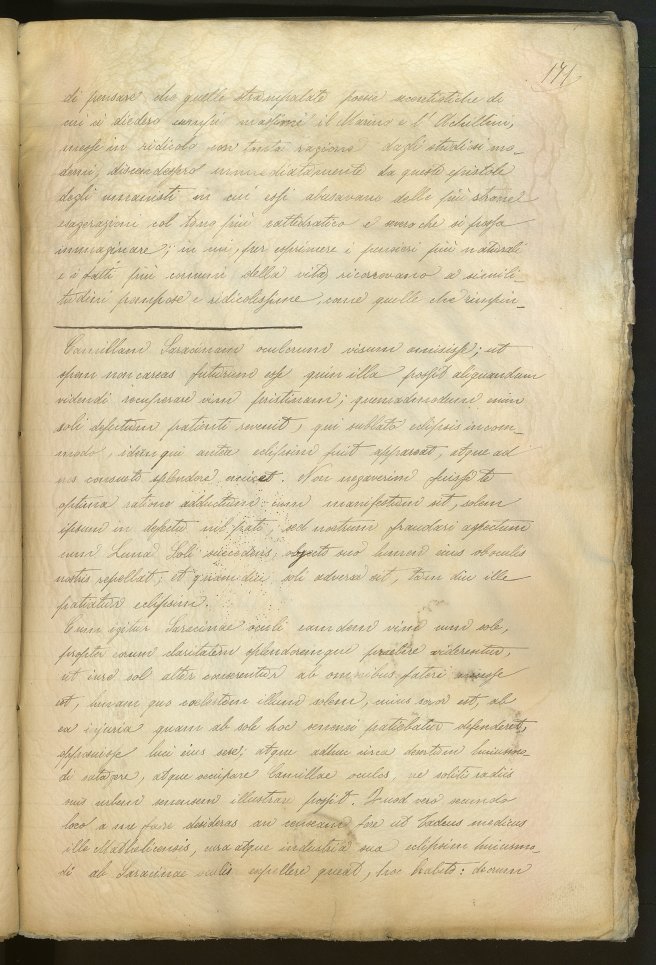 171
di pensare che quelle strampalate poesie secentistiche di
cui ci diedero esempi massimi il Marino e l'Achillini,
messe in ridicolo con tanta ragione dagli studiosi mo-
derni, discendessero immediatamente da queste epistole
degli umanisti in cui essi abusavano delle più strane
esagerazioni col tono più cattedratico e severo che si possa
immaginare; in cui, per esprimere i pensieri più naturali
e i fatti più comuni della vita, ricorrevano a simili-
tudini pompose e ridicolissime, come quelle che riempi-
Camillam Saracinam oculorum visum amisisse; ut
spem non careas futurum esse quin illa possit aliquandum
videndi recuperare vim pristinam; quemadmodum enim
soli defectum patienti evenit, qui sublato eclipsis incom-
modo, idem qui antea eclipsim fuit appareat, atque ad
nos consueto splendore micet. Non negaverim fuisse te
optima ratione adductum: cum manifestum sit, solem
ipsum in defectu nil pati, sed nostrum fraudari aspectum
cum Luna Soli succedens, objecto suo lumen eius ab oculis
nostris repellat; et quamdiu soli adversa sit, tam diu ille
patiatur eclipsim.
Cum igitur Saracinae oculi eamdem vim cum sole,
propter eorum claritatem splendoremque praebere viderentur,
ut iure sol alter censerentur ab omnibus, fateri necesse
est, lunam quo caelestem illum orbem, cuius soror est, ab
ea injuria quam ab sole hoc senensi patiebatur defenderet,
opposuisse luci eius sese; atque adhuc circa
di , atque occupare Camillae oculos, ne solitis radiis
suis urbem senensem illustrare possit. Quod vero secundo
loco a me scire desideras an censeam fore ut Cadeus medicus
ille Mathelicensis, cura atque industria sua eclipsim huiusmo-
di ab Saracinae oculis expellere queat, hoc habeto: deorum